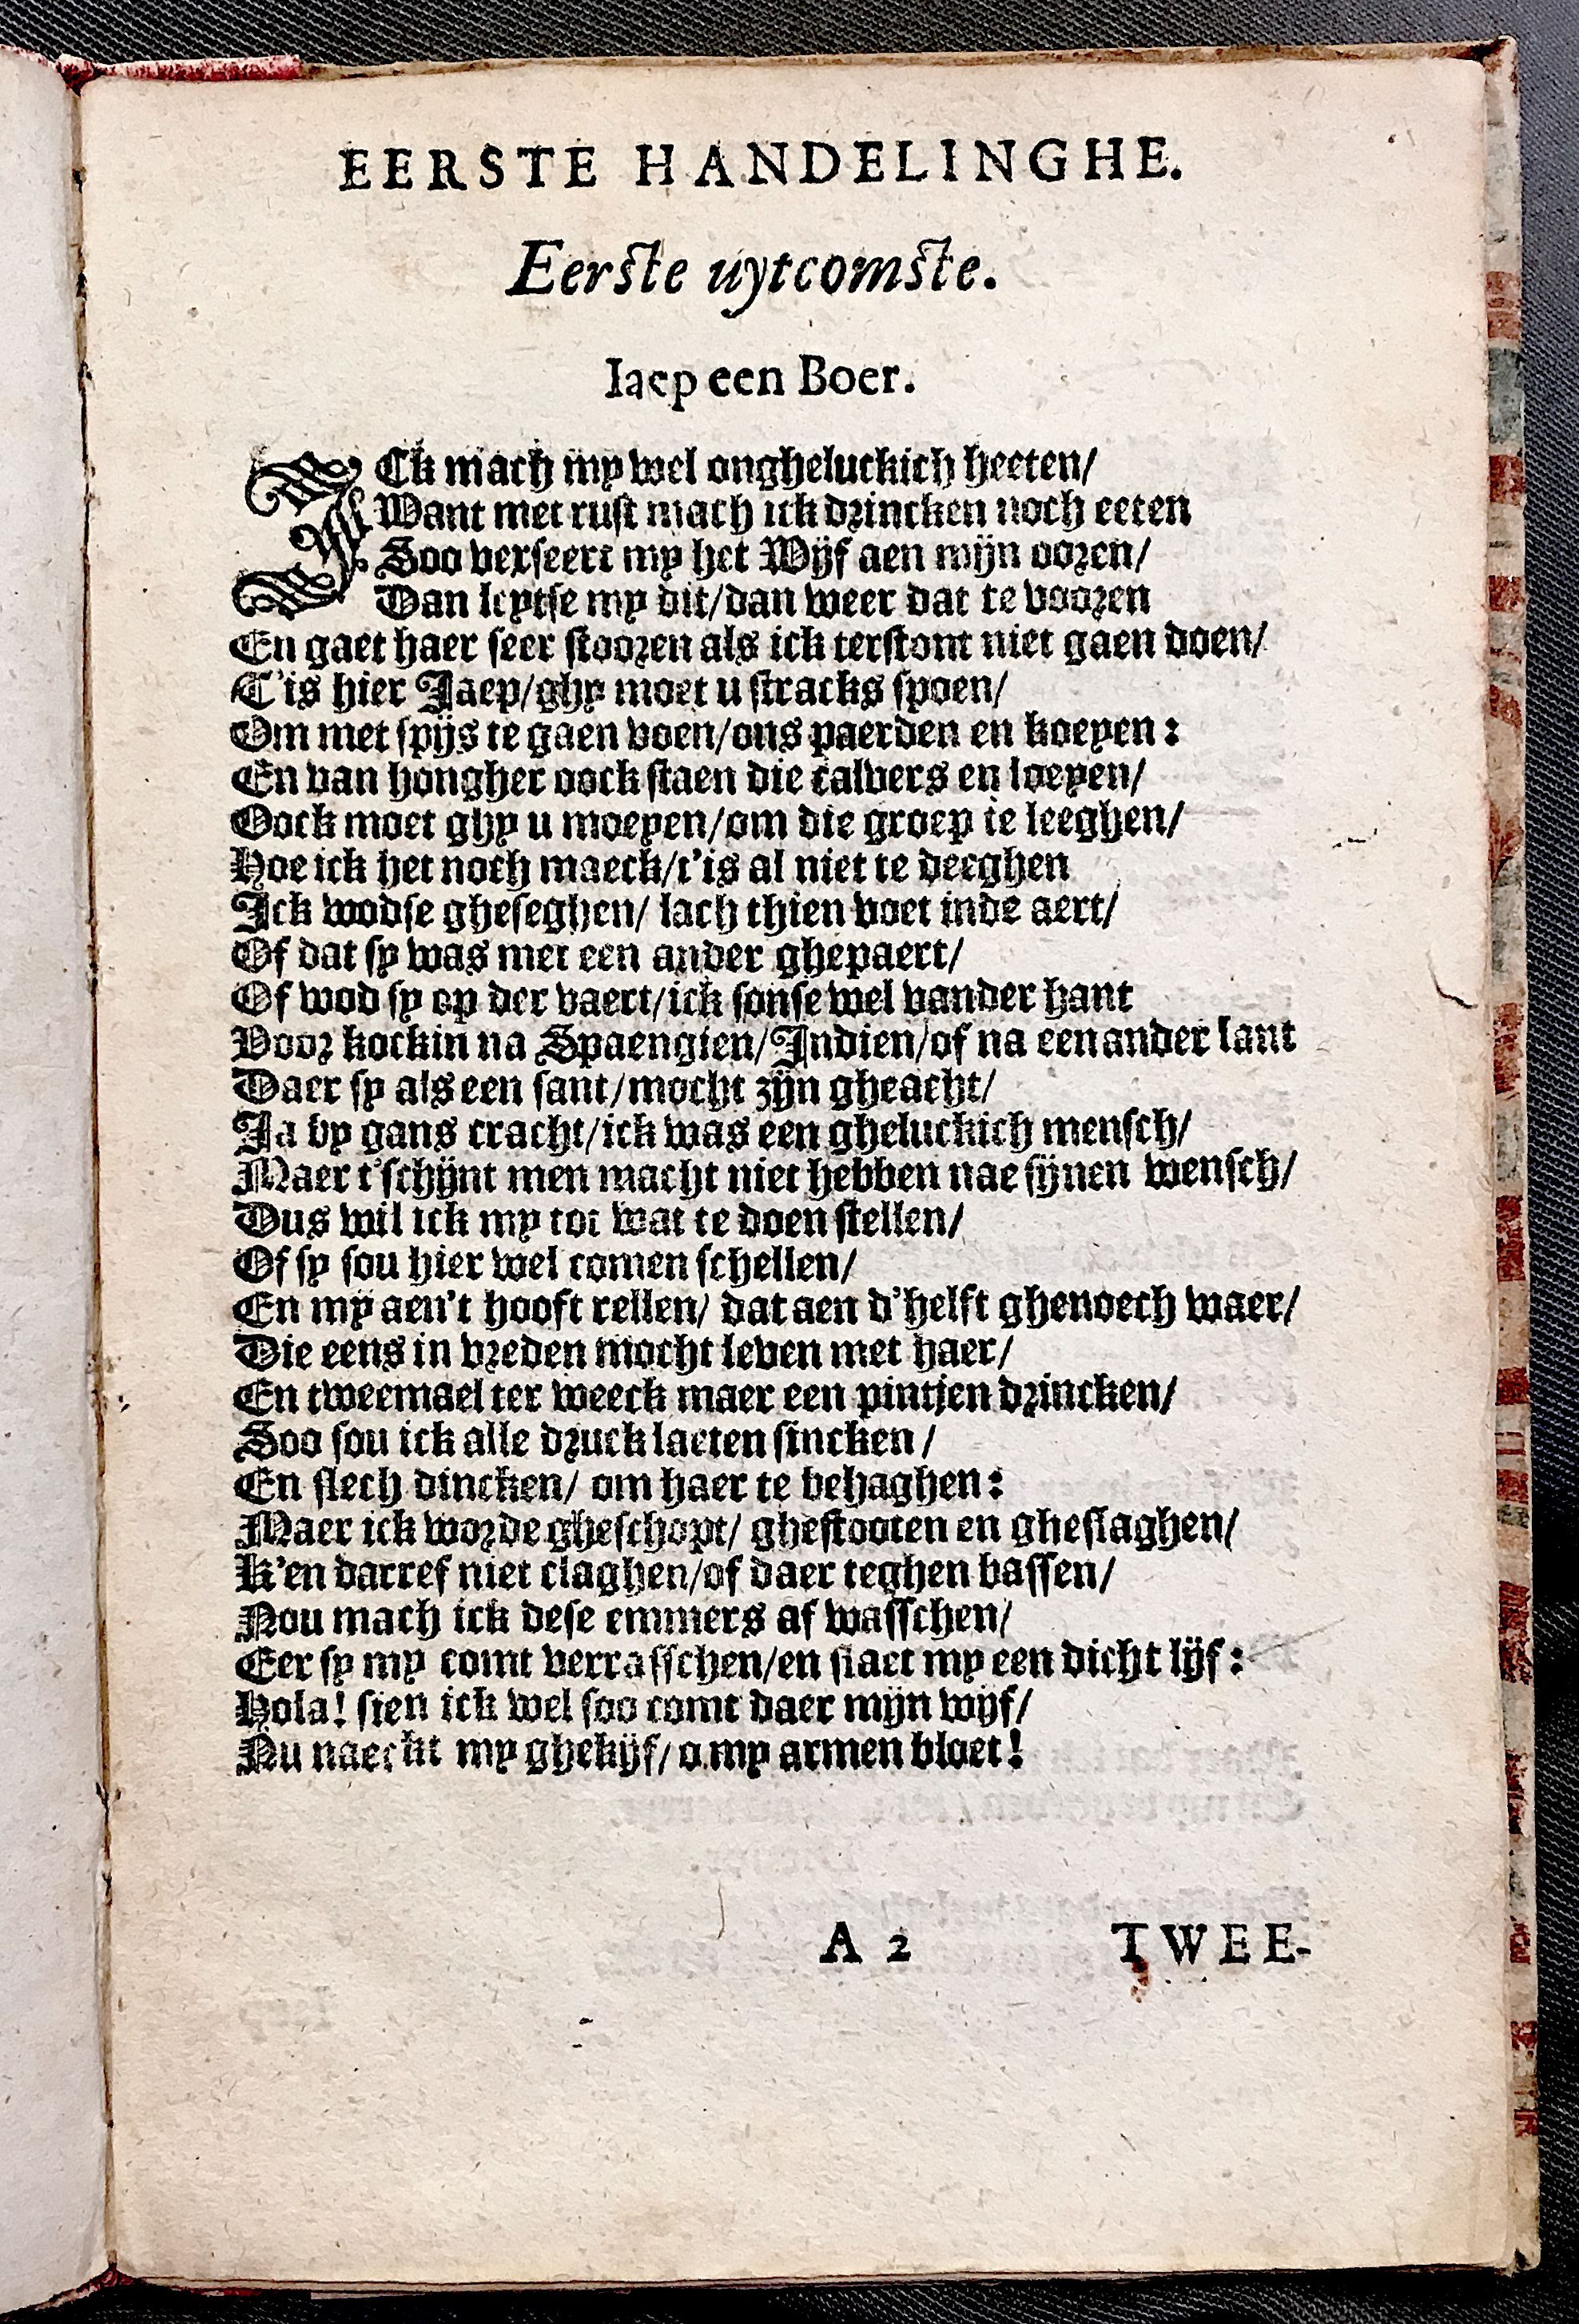 EERSTE HANDELINGHE.
Eerste uytcomste.
Iaep een Boer.
ICk mach my wel ongheluckich heeten/
Want met rust mach ick drincken noch eeten
Soo verseert my het Wijf aen mijn ooren/
Dan leytse my dit/dan weer dat te vooren
En gaet haer seer stooren als ick terstont niet gaen doen/
T'is hier Jaep/ghy moet u stracks spoen/
Om met spijs te gaen voen/ons paerden en koeyen:
En van hongher oock staen die calvers en loeyen/
Oock moet ghy u moeyen/om die groep te leeghen/
Hoe ick het noch maeck/t'is al niet te deeghen
Ick wodse gheseghen/ lach thien voet inde aert/
Of dat sy was met een ander ghepaert/
Of wod sy op der vaert/ick sonse wel vander hant
Voor kockin na Spaengien/Indien/of na een ander lant
Daer sy als een sant/mocht zijn gheacht/
Ja by gans cracht/ick was een gheluckich mensch/
Maer t'schijnt men macht niet hebben nae sijnen wensch/
Dus wil ick my tot wat te doen stellen/
Of sy sou hier wel comen schellen/
En my aen't hooft rellen/ dat aen d'helft ghenoech waer/
Die eens in vreden mocht leven met haer/
En tweemael ter weeck maer een pintjen drincken/
Soo sou ick alle druck laeten sincken/
En slech dincken/ om haer te behaghen:
Maer ick worde gheschopt/ ghestooten en gheslaghen/
K'en darref niet claghen/of daer teghen bassen/
Nou mach ick dese emmers af wasschen/
Eer sy my comt verrasschen/en slaet my een dicht lijf:
Hola! sien ick wel soo comt daer mijn wijf/
Nu naeckt my ghekijf/ o my armen bloet!
A 2 TWEE-